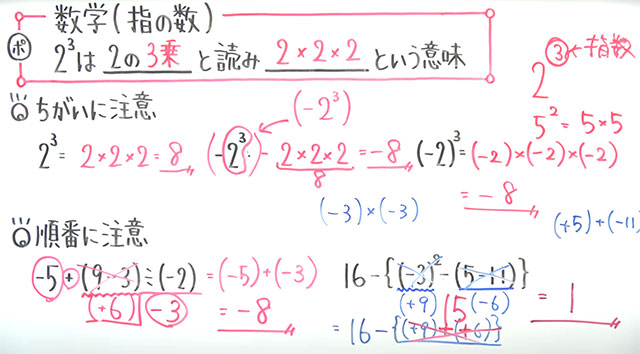 数学(指の数)
ポ 2³は 2の3乗 と読み 2×2×2 という意味
2³ ③←指数
5² = 5×5
ちがいに注意
(-2³)
2³= 2×2×2=8
(-2³)- 2×2×2 =-8
8
(-2)³=(-2)×(-2)×(-2)
=-8
(-3)×(-3)
(+5)+(-11)
順番に注意
-5+(9-3)÷(-2)=(-5)+(-3)
(+6) -3
=-8
16-{(-3)²-(5-11)}
(+9) 15 (-6)
=16-{(+9)+(+6)}
=1